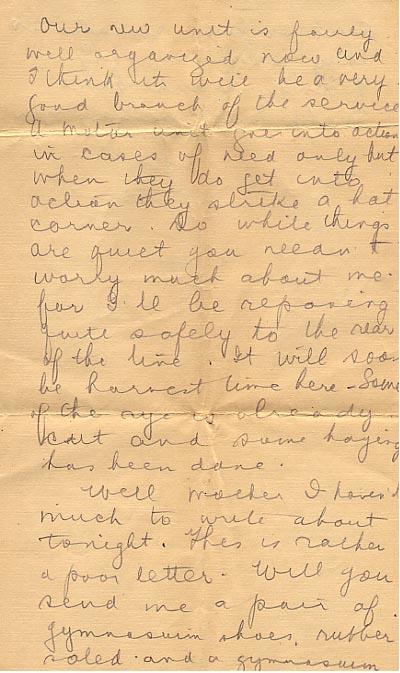 Our new unit is fairly
well organized now and
I think it will be a very
good branch of the service
A motor unit goes into action
in cases of need only but
when they do get into
action they strike a hot
corner. So while things
are quiet you needn't
worry much about me.
for I'll be reposing
quite safely to the rear
of the line. It will soon
be harvest time here - Some
of the rye is already
cut and some haying
has been done.
Well mother I haven't
much to write about
tonight. This is rather
a poor letter. Will you
send me a pair of
gymnasium shoes, rubber
soled and a gymnasium